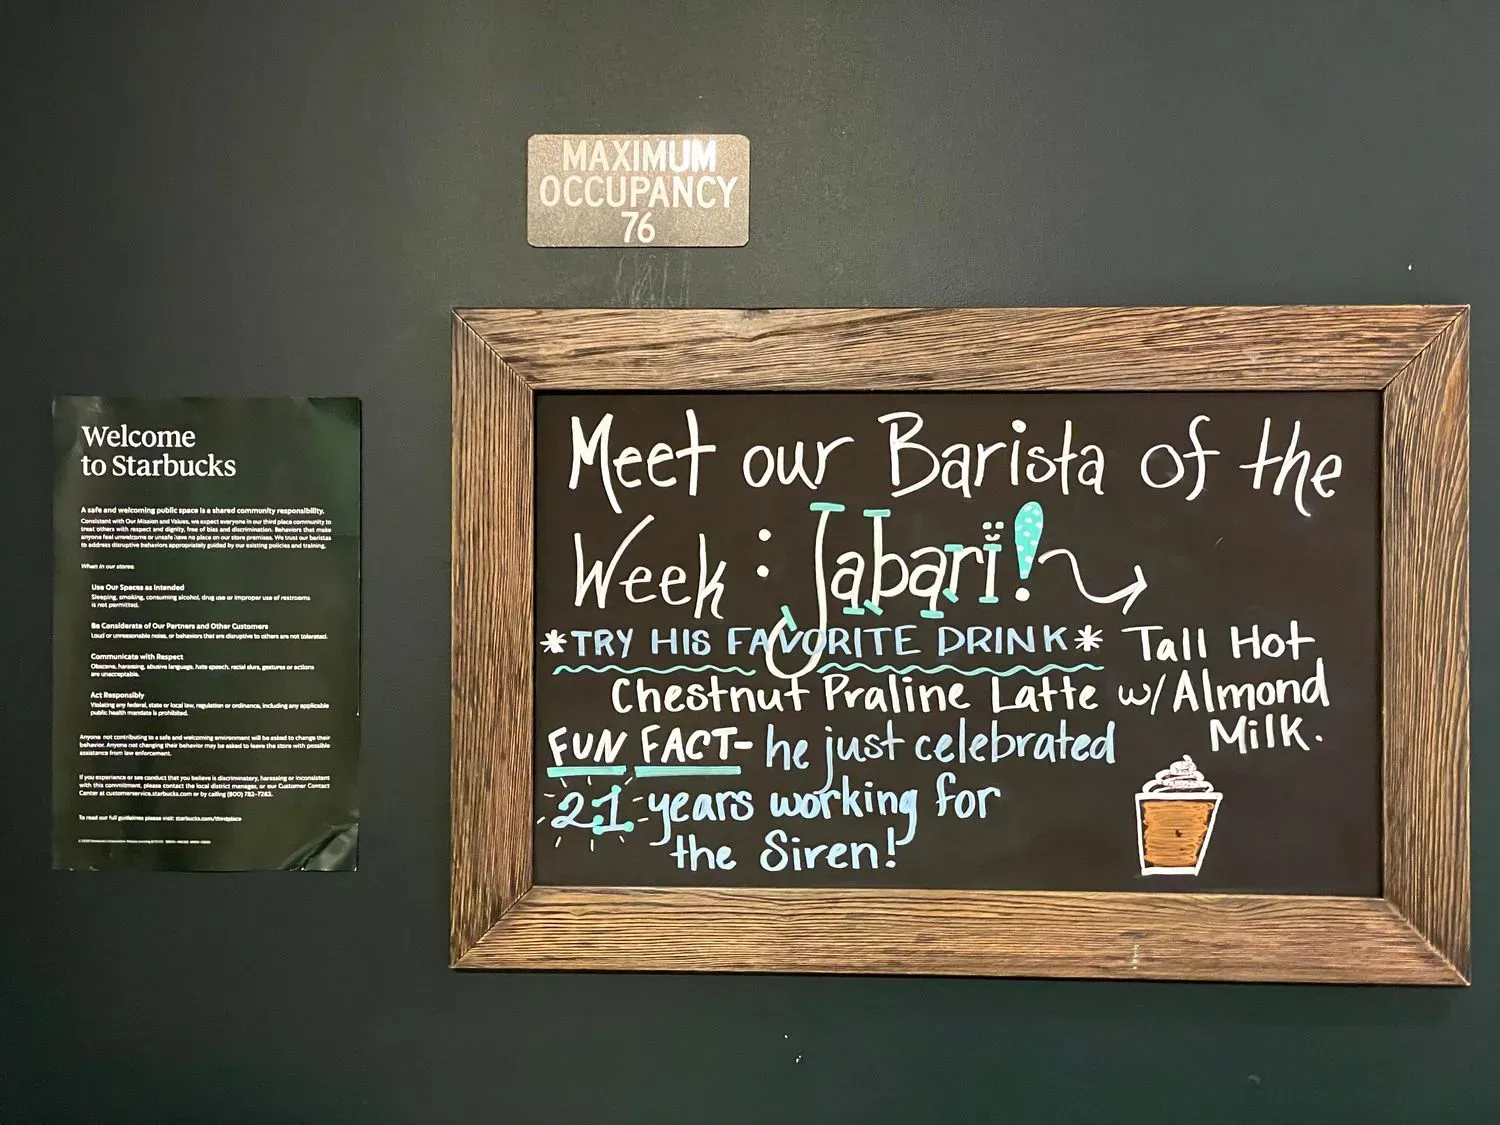 MAXIMUM
OCCUPANCY
76
Welcome
to Starbucks
A safe and welcoming public space is a shared community responsibility.
Consistent with Our Mission and Values, we expect everyone in our third place community to
treat others with respect and dignity, free of bias and discrimination. Behaviors that make
anyone feel unwelcome or unsafe have no place on our store premises. We trust our baristas
to address disruptive behaviors appropriately guided by our existing policies and training.
When in our stores:
Use Our Spaces as Intended
Sleeping, smoking, consuming alcohol, drug use or improper use of restrooms
is not permitted.
Be Considerate of Our Partners and Other Customers
Loud or unreasonable noise, or behaviors that are disruptive to others are not tolerated.
Communicate with Respect
Obscene, harassing, abusive language, hate speech, racial slurs, gestures or actions
are unacceptable.
Act Responsibly
Violating any federal, state or local law, regulation or ordinance, including any applicable
public health mandate is prohibited.
Anyone not contributing to a safe and welcoming environment will be asked to change their
behavior. Anyone not changing their behavior may be asked to leave the store with possible
assistance from law enforcement.
If you experience or see conduct that you believe is discriminatory, harassing or inconsistent
with this commitment, please contact the local district manager, or our Customer Contact
Center at customerservice.starbucks.com or by calling (800) 782-7282.
To read our full guidelines please visit: starbucks.com/thirdplace
Meet our Barista of the
Week: Jabari!
*TRY HIS FAVORITE DRINK* Tall Hot
Chestnut Praline Latte w/ Almond
Milk.
FUN FACT- he just celebrated
21 years working for
the Siren!